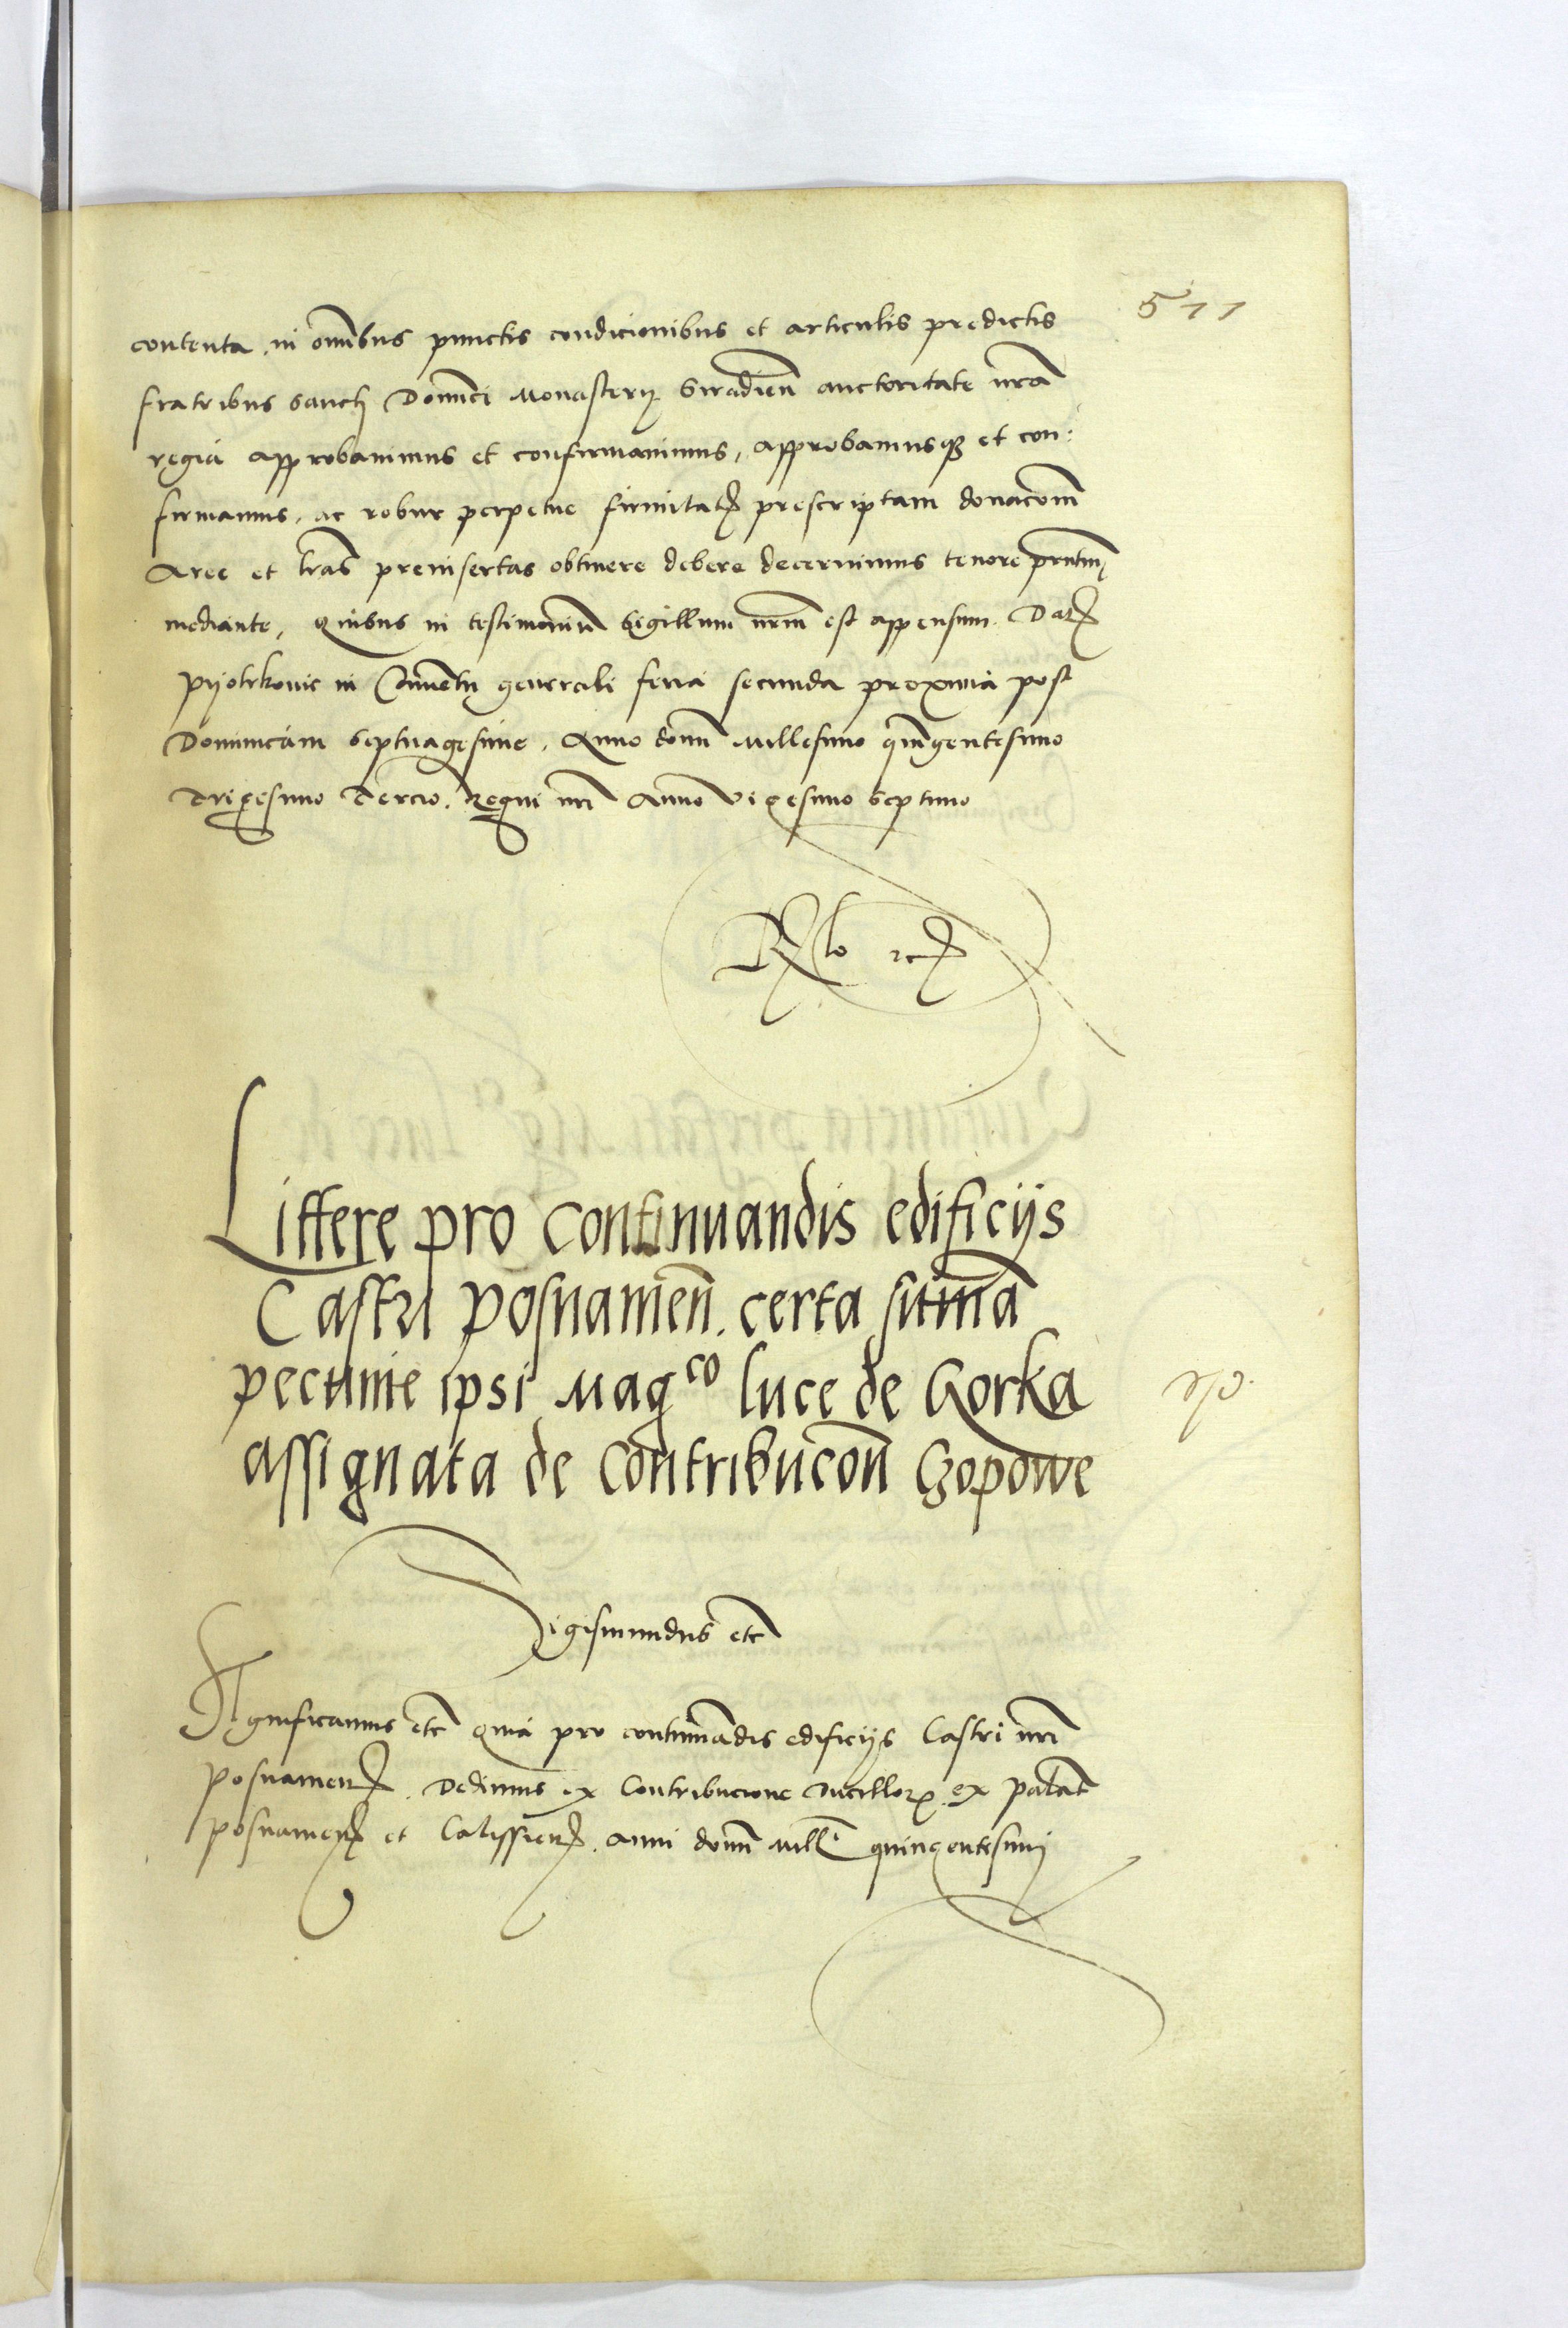 511
contenta, in omibus punctis condicionibus et articulis predictis
fratribus sancti Dominici Monasterij Siradien auctoritate nrã
regia approbavimus et confirmavimus, approbamusq3 et con:
firmamus, ac robur perpetue firmitatis prescriptam donacom
Aree et lras preinsertas obtinere debere decernimus tenore prntium
mediante, Quibus in testimonium Sigillum nrm est appensum. Dat
Pyotrkovie in Conuentu generali feria secunda proxima post
Dominicam Septuagesime, Anno domini Millesimo quingentesimo
Trigesimo Tercio. Regni nri Anno vigesimo Septimo
Rlo
Littere pro continuandis edificijs
Castri Posnanien. certa summa
pecunie ipsi Magco Luce de Gorka
assignata de contribucon Czopowe
Sigismundus etc
Significamus etc quia pro continuandis edificijs Castri nri
Posnanien. Dedimus ex Contribucione ducillor ex palat
Posnanien et Calissien. anni domini mill quingentesimi